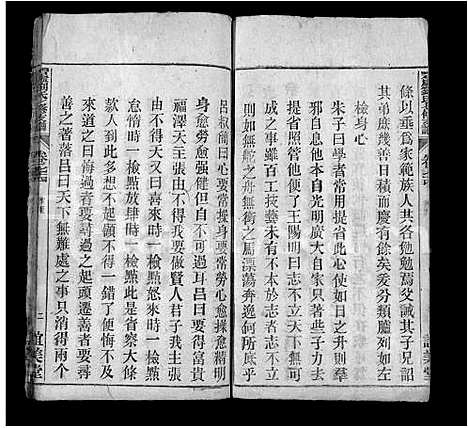 條以垂為家範族人共各勉勉焉父誡其子兄詔
其弟庶幾善日積而慶有餘矣委分類臚列如左
檢身心
朱子曰學者常用提省此心使如日之升則羣
邪自息他本自光明廣大自家只著些子力去
提省照管他便了王陽明曰志不立天下無可
成之事雖百工技藝未有不本於志者志不立
如無舵之舟無銜之馬漂蕩奔逸何所底乎
呂叔簡曰心要常操身要常勞心愈操愈精明
身愈勞愈強健但自不可過耳呂曰要得富貴
福澤天主張由不得我要做賢人君子我主張
由不得天又曰喜來時一檢點怒來時一檢點
怠惰時一檢點放肆時一檢點此是省察大條
款人到此多想不起顧不得一錯了便悔不及
來道遷曰悔過者要尋過之起頭遷善者要尋
善之著落呂曰天下無難處之事只消得兩個
誼美堂